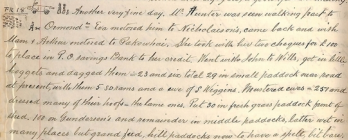 Feb 18 Another very fine day. Mr Hunter was seen walking past to
Ormond. Eva motored him to Nicholaisens, came back and with
Mum & Mollow motored to Pakowhai. She took with her two cheques for £100
to place in P.O. savings Bank to her credit. Kuni with John & Wills, got in hill
hoggets and dagged them = 23 and six total 29 in small paddock near road
at present, with them 5 SD rams and a ewe of S Wiggins. Mustered ewes = 257 and
dressed many of their hoofs, the lame ones. Put 50 in fresh grass paddock front of
shed. 100 on Gunderson's and remainder in middle paddocks, latter wet in
many places but grand feed, hill paddocks now to have a spell, til